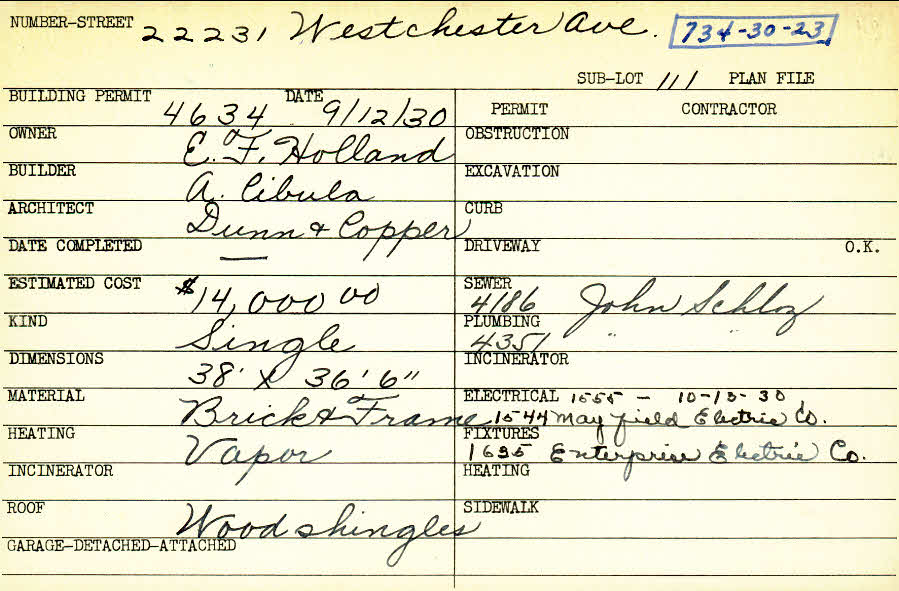 NUMBER-STREET 22231 Westchester Ave. 734-30-23
SUB-LOT 111 PLAN FILE
BUILDING PERMIT 4634 DATE 9/12/30
PERMIT CONTRACTOR
OWNER E. F. Holland
OBSTRUCTION
BUILDER A. Cibula
EXCAVATION
ARCHITECT Dunn & Copper
CURB
DATE COMPLETED —
DRIVEWAY O.K.
ESTIMATED COST $14,000 00
SEWER 4186 John Schloz
KIND Single
PLUMBING 4351 " "
DIMENSIONS 38' x 36' 6"
INCINERATOR
MATERIAL Brick & Frame
ELECTRICAL 1555 - 10-13-30
1544 Mayfield Electric Co.
HEATING Vapor
FIXTURES
1695 Enterprise Electric Co.
INCINERATOR
HEATING
ROOF Wood shingles
SIDEWALK
GARAGE-DETACHED-ATTACHED